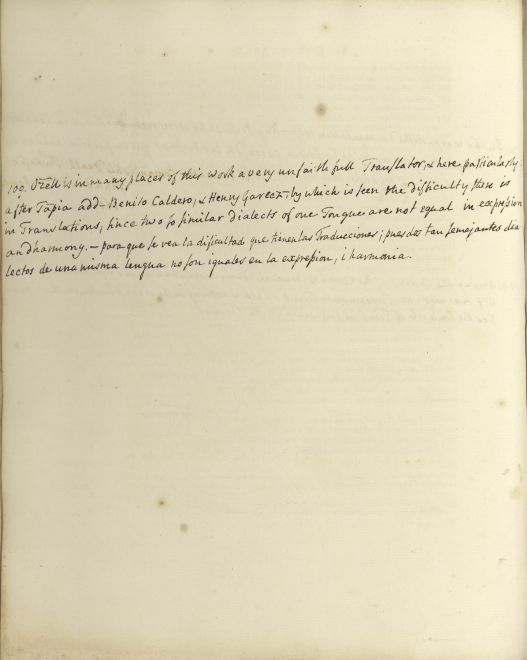 109. Ozell is in many places of this work a very unfaithfull Translator, & here particularly.
after Tapia add - Benito Caldero, & Henry Garecz, by which is seen the difficulty there is
in Translations, since two so similar dialects of one Tongue are not equal in expression
and harmony. — para que se vea la dificultad que tienen las Traducciones; pues dos tan semejantes dia
lectos de una misma lengua no son iguales en la expresion, i harmonia.